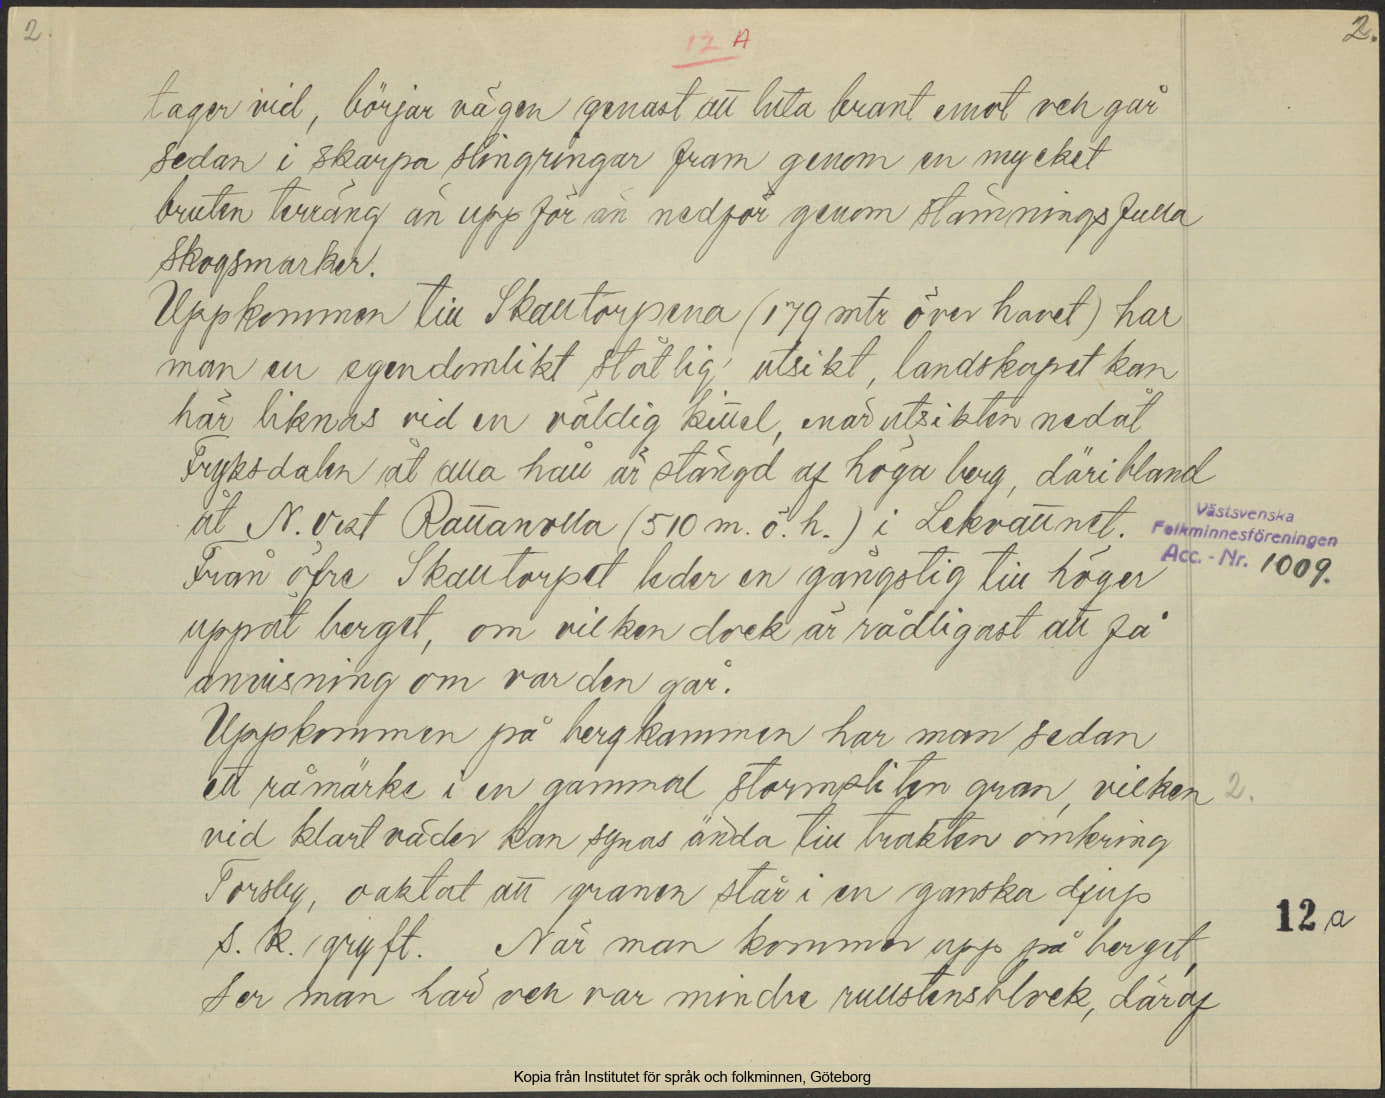 2.
12 A
2.
tager vid, börjar vägen genast att luta brant emot och går
sedan i skarpa slingringar fram genom en mycket
bruten terräng än uppför än nedför genom stämningsfulla
skogsmarker.
Uppkommen till Skalltorpena (179 mtr över havet) har
man en egendomlikt ståtlig utsikt, landskapet kan
här liknas vid en väldig kittel, enär utsikten nedåt
Fryksdalen åt alla håll är stängd af höga berg, däribland
åt N. vest Rattanolla (510 m. ö. h.) i Lekvattnet.
Från öfre Skalltorpet leder en gångstig till höger
uppåt berget, om vilken dock är rådligast att få
anvisning om var den går.
Uppkommen på bergkammen har man sedan
ett råmärke i en gammal stormsliten gran, vilken
vid klart väder kan synas ända till trakten omkring
Torsby, oaktat att granen står i en ganska djup
s. k. gryft. När man kommer upp på berget,
ser man här och var mindre rullstensblock, däraf
Västsvenska
Folkminnesföreningen
Acc. - Nr. 1009.
2.
12 a
Kopia från Institutet för språk och folkminnen, Göteborg